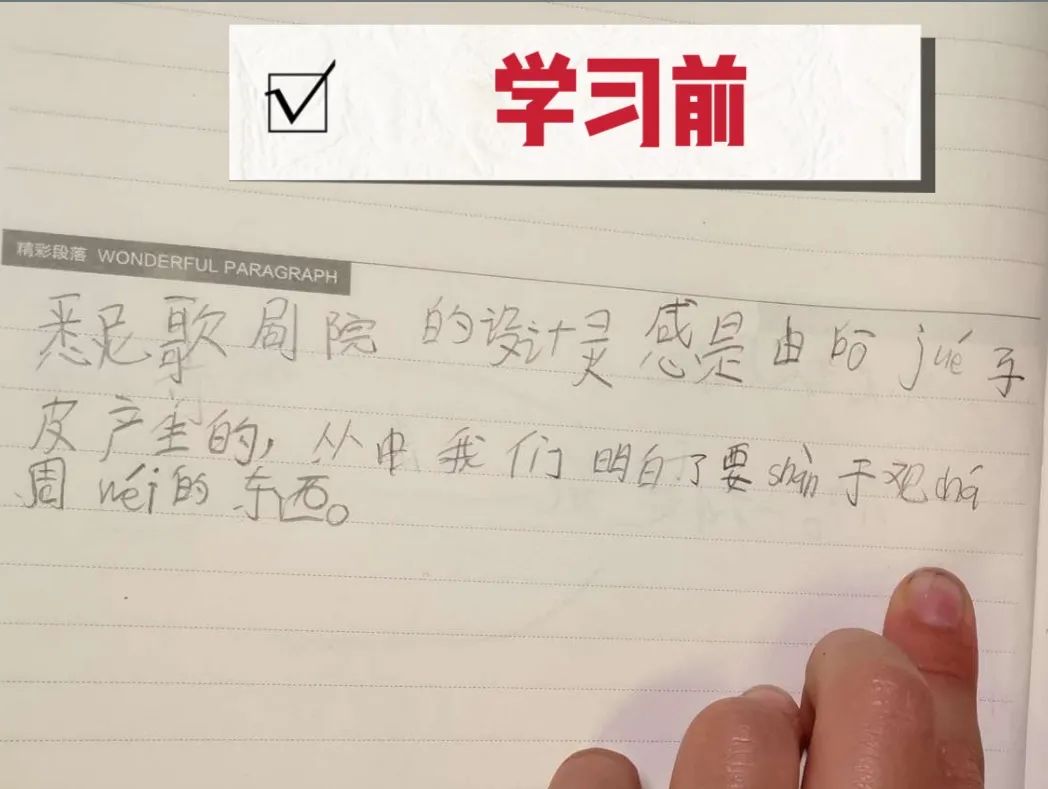 学习前
精彩段落 WONDERFUL PARAGRAPH
悉尼歌剧院的设计灵感是由bō jué子
皮产生的，从中我们明白了要shàn于观chá
周wéi的东西。